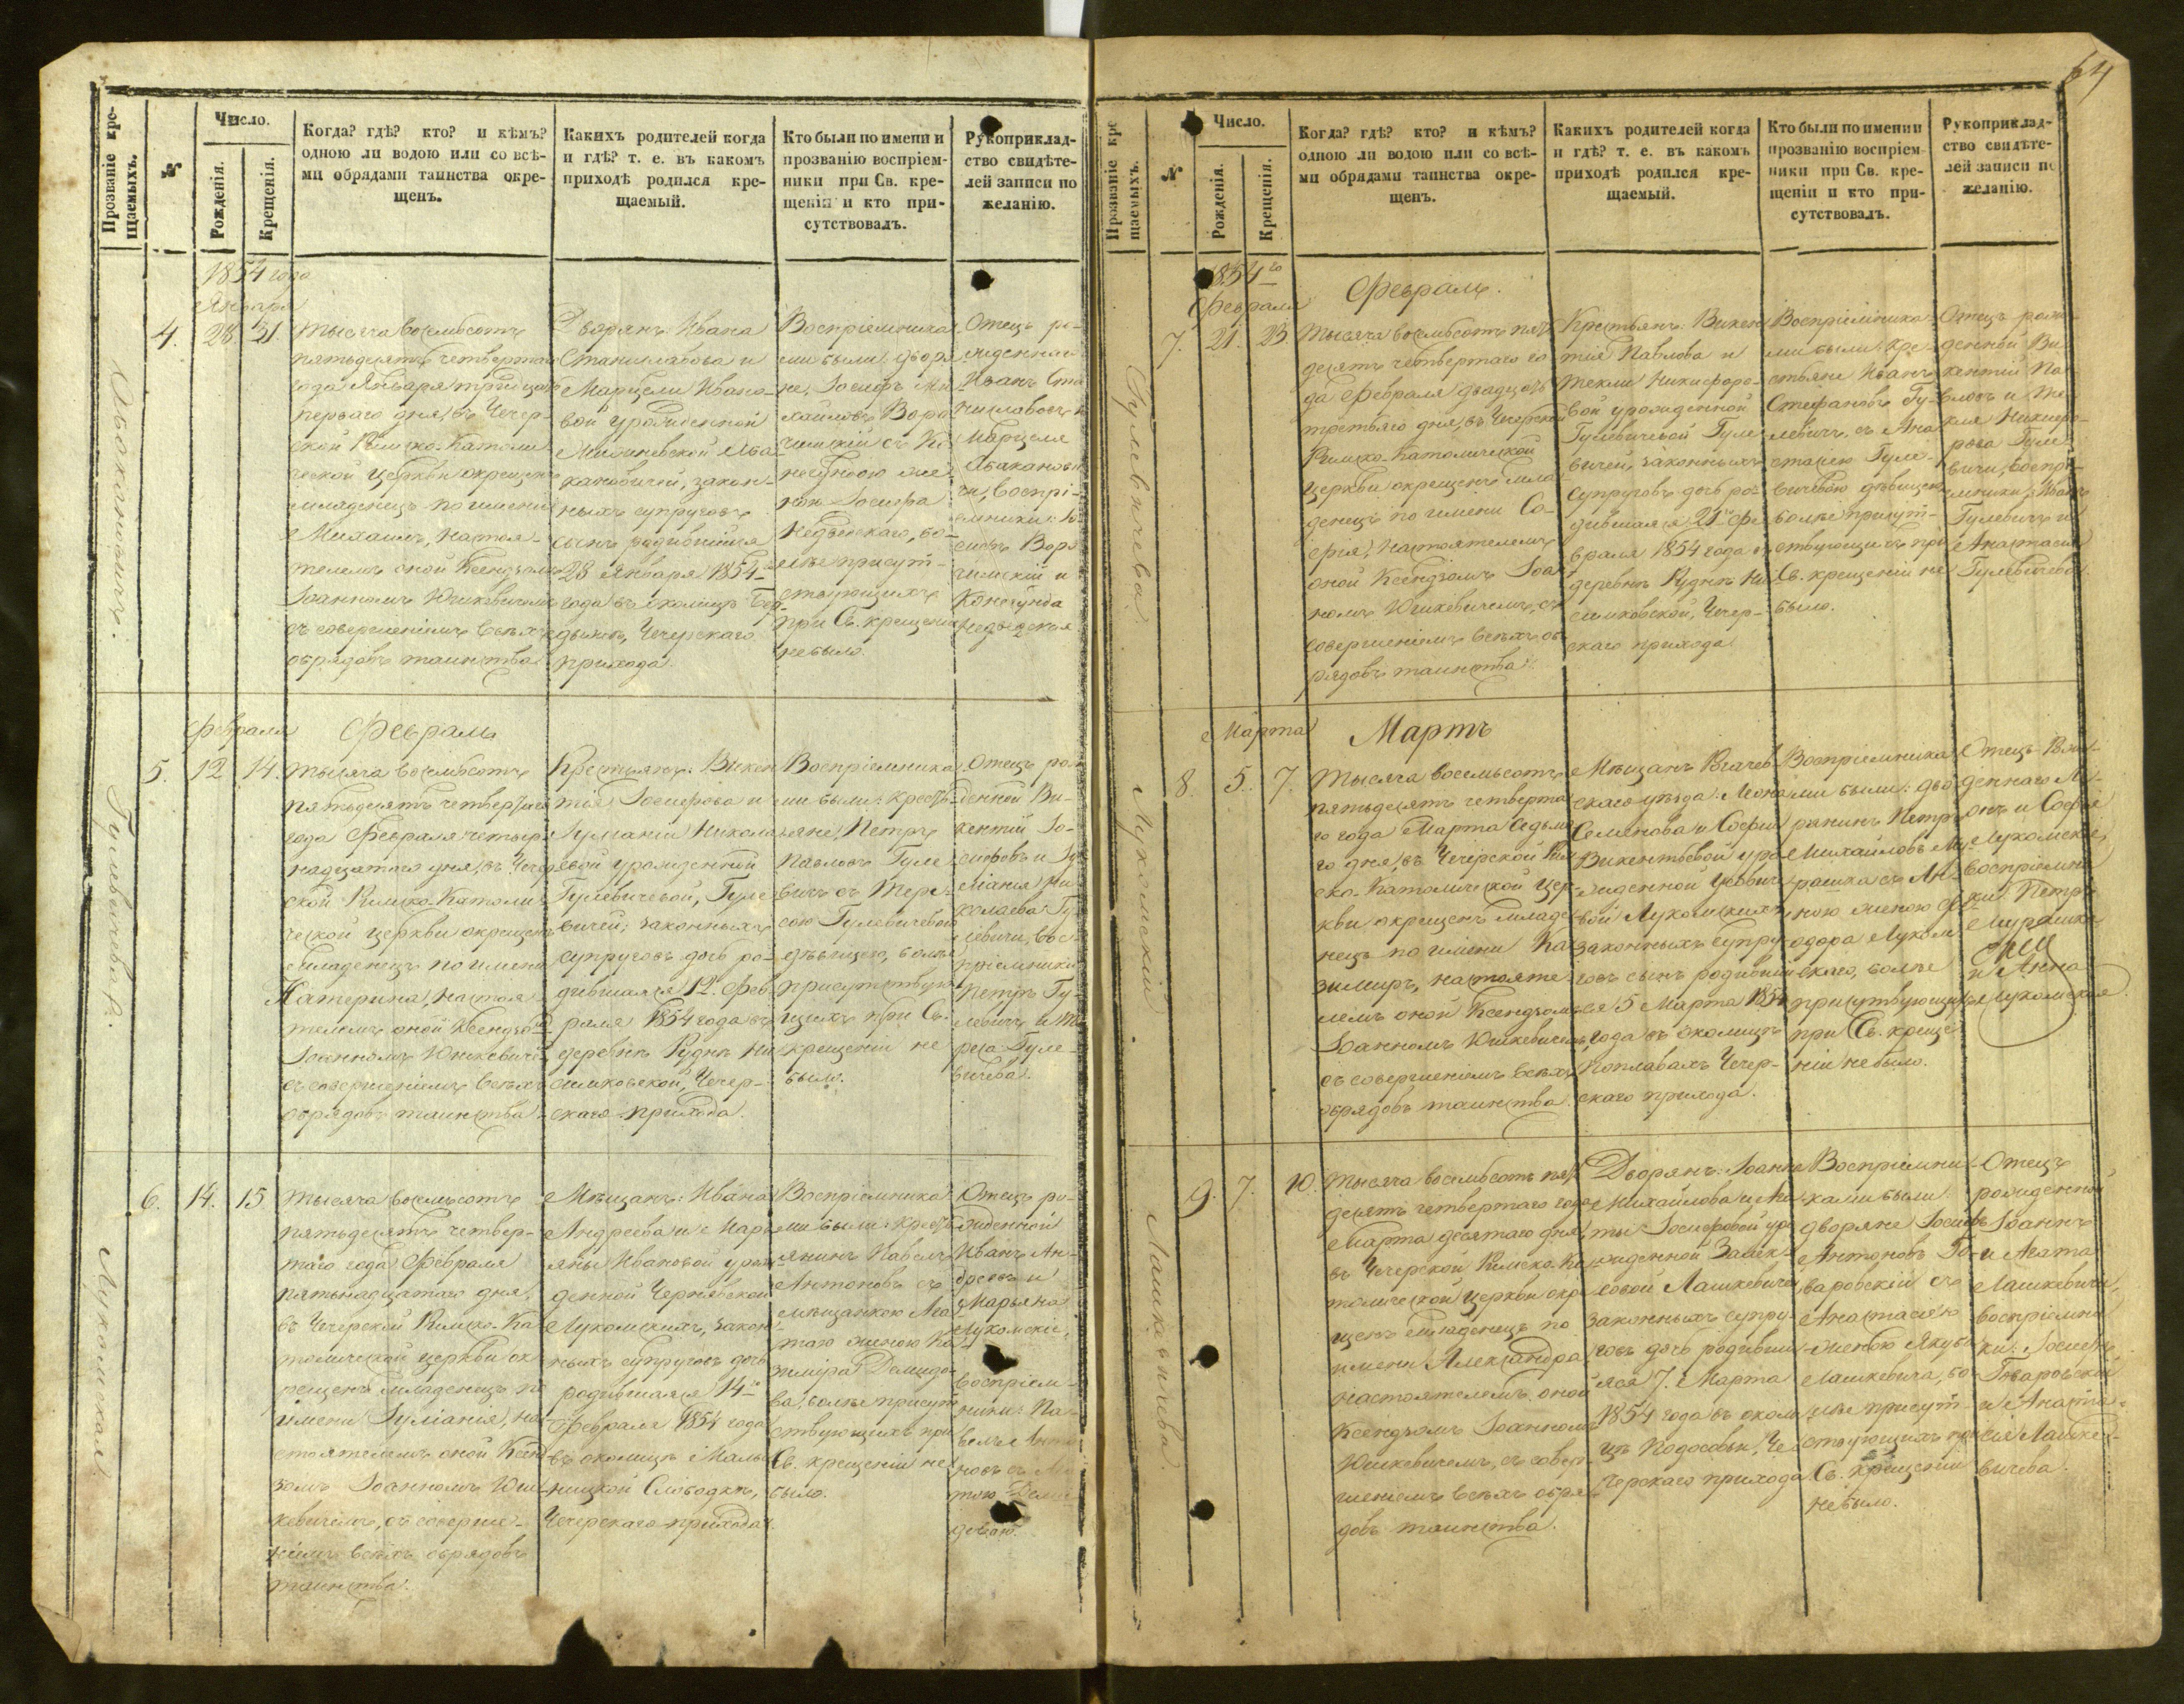 Прозваніе кре-
щаемыхъ.
№
Число.
Рожденія.
Крещенія.
Когда? гдѣ? кто? и кѣмъ?
одною ли водою или со всѣ-
ми обрядами таинства окре-
щенъ.
Какихъ родителей когда
и гдѣ? т. е. въ какомъ
приходѣ родился кре-
щаемый.
Кто были по имени и
прозванію воспріем-
ники при Св. кре-
щеніи и кто при-
сутствовалъ.
Рукоприклад-
ство свидѣте-
лей записи по
желанію.
1854 года
Января
4.
28.
31.
Тысяча восемьсотъ
пятьдесятъ четвертаго
года Января тридцать
перваго дня, въ Чечер-
ской Римско-Католи
ческой церкви окрещенъ
младенецъ по имени
Михаилъ, настоя-
телемъ оной Ксендзомъ
Іоанномъ Юшкевичемъ
съ совершеніемъ всѣхъ
обрядовъ таинства.
Дворянъ: Ивана
Станиславова и
Марцели Ивано-
вой урожденной
кановичей, закон-
ныхъ супруговъ
сынъ родившійся
28 Января 1854
года въ околицѣ
Чечерскаго
прихода.
Воспріемника
ми были: дворя
не, Іосифъ Ми
хайловъ
съ Ко
негундою же
ною Іосифа
бо-
лѣе присут-
ствующихъ
при Св. крещеніи
небыло.
Отецъ ро-
жденнаго
Иванъ Ста
ниславовъ и
Марцеля
Абаканови
чи, воспрі-
емники: Іо-
сифъ
и
Конегунда
Абакановичъ.
Февраля
Февраль
5.
12
14.
Тысяча восемьсотъ
пятьдесятъ четвертаго
года Февраля четыр
надцатаго дня, въ Чечер
ской Римско-Католи
ческой церкви окрещенъ
младенецъ по имени
Катерина, настоя
телемъ оной Ксендзомъ
Іоанномъ Юшкевичемъ
съ совершеніемъ всѣхъ
обрядовъ таинства.
Крестьянъ: Викен
тія Іосифова и
Іуліаніи Никола
евой урожденной
Гулевичевой, Гуле
вичей, законныхъ
супруговъ дочь ро-
дившаяся 12 Фев
раля 1854 года въ
деревнѣ Руднѣ Ни
симковской, Чечер-
скаго прихода.
Воспріемника
ми были: кресть
яне, Петръ
Павловъ Гуле
вичъ съ Тере-
сою Гулевичевою
дѣвицею, болѣе
присутствую
щихъ при Св.
крещеніи не
было.
Отецъ рож
денной Ви-
кентій Іо-
сифовъ и Іу
ліанія Ни
колаева Гу
левичи, вос-
пріемники
Петръ Гу-
левичъ и Те
реса Гуле-
вичева.
Гулевичева.
6.
14.
15.
Тысяча восемьсотъ
пятьдесятъ четвер-
таго года Февраля
пятьнадцатаго дня,
въ Чечерской Римско-Ка
толической церкви ок
рещенъ младенецъ по
имени Іуліанія, на
стоятелемъ оной Ксенд
зомъ Іоанномъ Юш
кевичемъ, съ соверше-
ніемъ всѣхъ обрядовъ
таинства.
Мѣщанъ: Ивана
Андреева и Марь
яны Ивановой урож
денной Чернявской
Лукомскихъ, закон
ныхъ супруговъ дочь
родившаяся 14го
Февраля 1854 года
въ околицѣ Малы
ницкой Слободкѣ,
Чечерскаго прихода.
Воспріемника
ми были: кресть
янинъ Павелъ
Антоновъ съ
мѣщанкою Ага
тою женою Ка
зиміра Демидо
ва, болѣе присут
ствующихъ при
Св. крещеніи не
было.
Отецъ ро-
жденной
Иванъ Ан-
дреевъ и
Марьяна
Лукомскіе,
воспріем-
ники: Па-
велъ Анто
новъ съ Ага
тою Деми
довою.
Лукомская
64
Прозваніе кре
щаемыхъ.
№
Число.
Рожденія.
Крещенія.
Когда? гдѣ? кто? и кѣмъ?
одною ли водою или со всѣ-
ми обрядами таинства окре-
щенъ.
Какихъ родителей когда
и гдѣ? т. е. въ какомъ
приходѣ родился кре-
щаемый.
Кто были по имени и
прозванію воспріем-
ники при Св. кре-
щеніи и кто при-
сутствовалъ.
Рукоприклад-
ство свидѣте-
лей записи по
желанію.
1854го
Февраля
Февраль.
7.
21.
23
Тысяча восемьсотъ пять
десятъ четвертаго го
да Февраля двадцать
третьяго дня, въ Чечерской
Римско-Католической
церкви окрещенъ мла
денецъ по имени Со-
фія, настоятелемъ
оной Ксендзомъ Іоан
номъ Юшкевичемъ, съ
совершеніемъ всѣхъ об
рядовъ таинства.
Крестьянъ: Викен
тія Павлова и
Текли Никифоро-
вой урожденной
Гулевичевой Гуле
вичей, законныхъ
супруговъ дочь ро-
дившаяся 21 Фе
враля 1854 года въ
деревнѣ Руднѣ Ни
симковской, Чечер-
скаго прихода.
Воспріемника-
ми были: кре-
стьяне Иванъ
Стефановъ Гу-
левичъ, съ Ана
стасіею Гуле-
вичевою дѣвицею
болѣе присут-
ствующихъ при
Св. крещеніи не
было.
Отецъ рож-
денной Ви-
кентій Па-
вловъ и Те-
кля Никифо-
рова Гуле
вичи, воспрі-
емники: Иванъ
Гулевичъ и
Анастасія
Гулевичева.
Гулевичева
Марта
Мартъ
8.
5.
7.
Тысяча восемьсотъ
пятьдесятъ четверта
го года Марта седьма
го дня, въ Чечерской Рим
ско-Католической цер-
кви окрещенъ младе
нецъ по имени Ка
зимиръ, настояте
лемъ оной Ксендзомъ
Іоанномъ Юшкевичемъ,
съ совершеніемъ всѣхъ
обрядовъ таинства.
Мѣщанъ Рогачев
скаго уѣзда: Леона
Семенова и Софіи
Викентьевой уро
жденной
вой Лукомскихъ
законныхъ супру
говъ сынъ родивші
йся 5 Марта 1854
года въ околицѣ
Поплавахъ Чечер-
скаго прихода.
Воспріемника
ми были: дво
рянинъ Петръ
Михайловъ Му
рашка съ Ан-
ною женою Ѳе
одора Луком
скаго, болѣе
присутвующихъ
при Св. креще
ніи небыло.
Отецъ Рож-
деннаго Ле-
онъ и Софья
Лукомскіе,
воспріемни
ки: Петръ
Мурашка
и Анна
Лукомская.
Лукомскій
9.
7.
10.
Тысяча восемьсотъ пять
десятъ четвертаго года
Марта десятаго дня,
въ Чечерской Римско-Ка
толической церкви окре
щенъ младенецъ по
имени Александра,
настоятелемъ оной
Ксендзомъ Іоанномъ
Юшкевичемъ, съ совер-
шеніемъ всѣхъ обря
довъ таинства.
Дворянъ: Іоанна
Михайлова и Ага
ты Іосифовой уро
жденной
Лашкевичей
законныхъ супру
говъ дочь родивша
яся 7. Марта
1854 года въ околи
цѣ Подосовьи, Че
черскаго прихода.
Воспріемни
ками были
дворяне Іосифъ
Антоновъ Го-
варовскій съ
Анастасіею
женою Якуба
Лашкевича, бо
лѣе присут-
ствующихъ при
Св. крещеніи
небыло.
Отецъ
рожденной
Іоаннъ
и Агата
Лашкевичи,
воспріемни
ки: Іосифъ
Говаровскій
и Анаста-
сія Лашке-
вичева.
Лашкевичева.